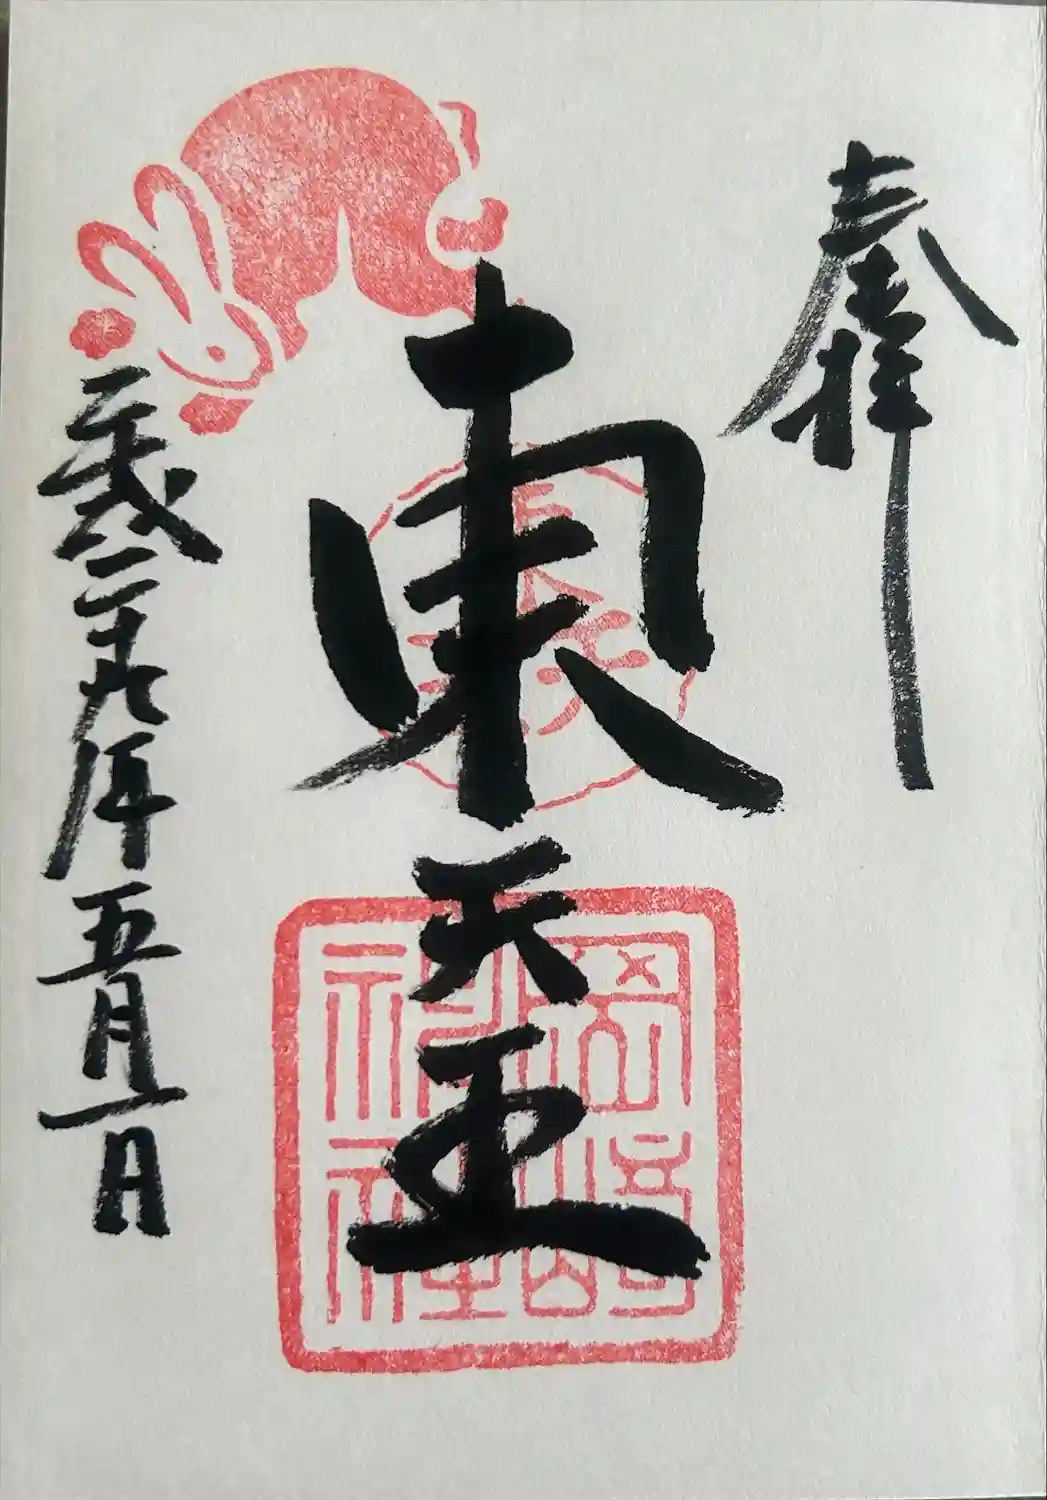 奉拝
東天王
岡﨑
神社
平成二十九年五月一日